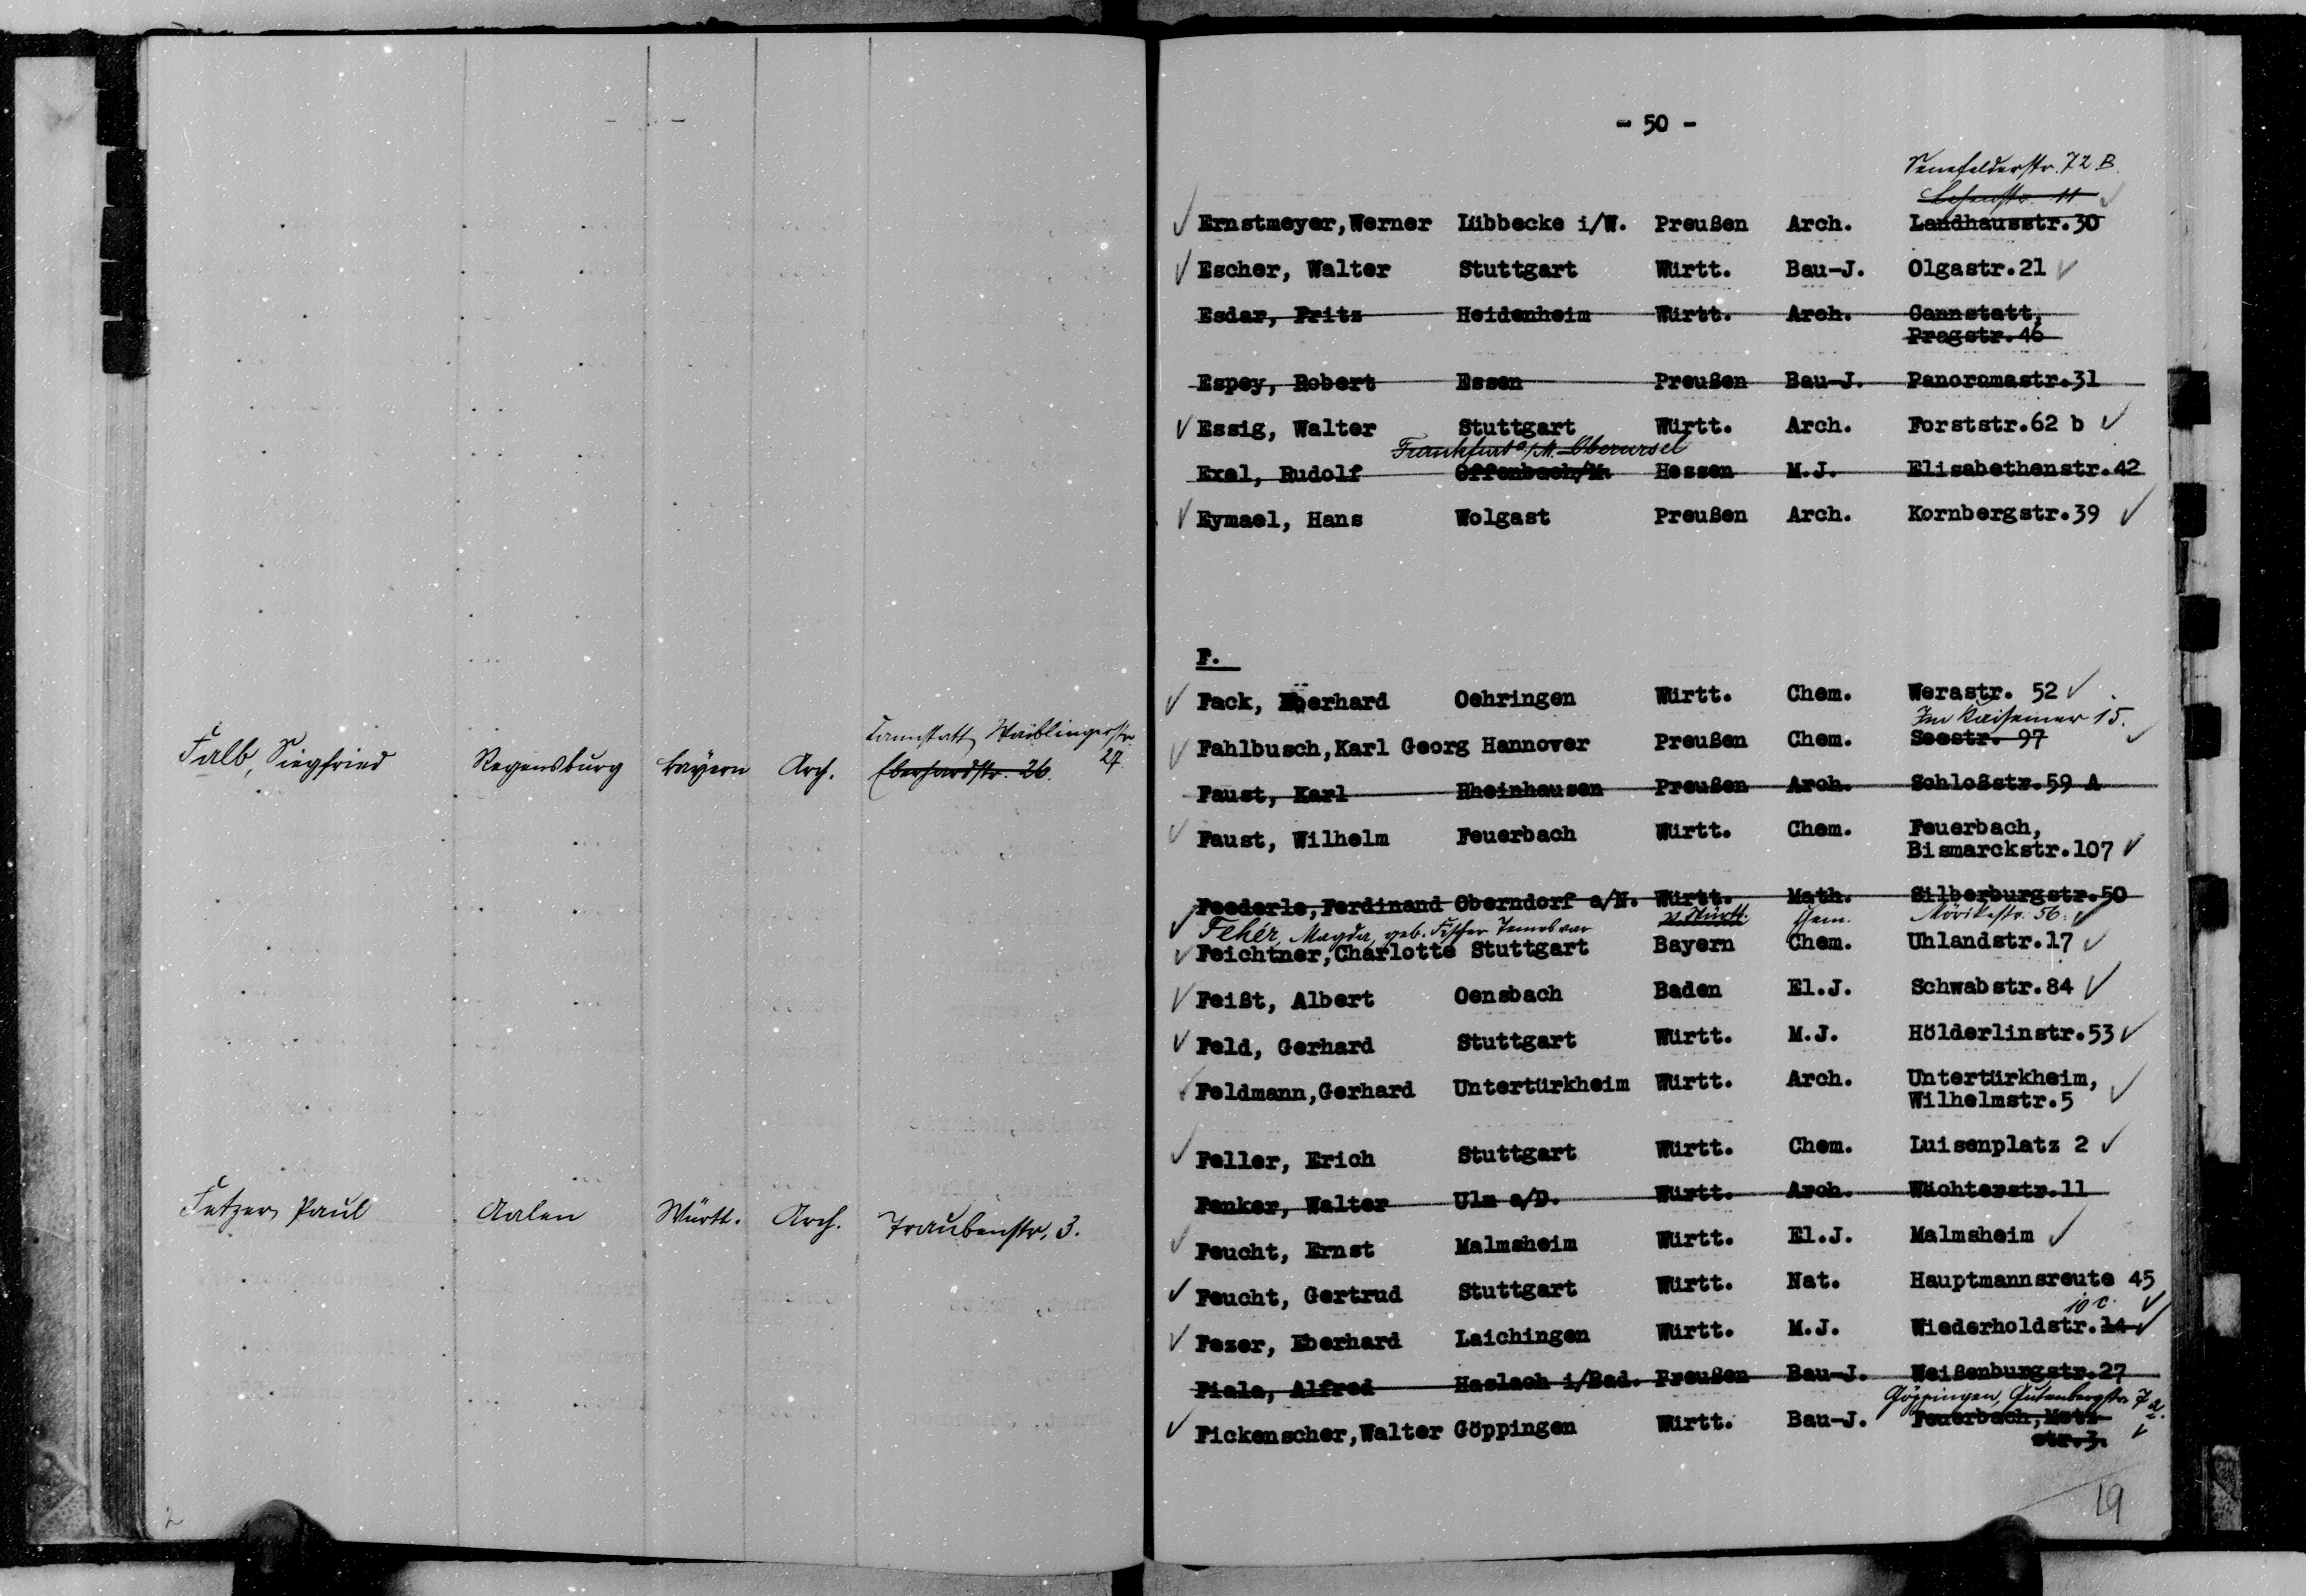 Falb, Siegfried Regensburg Bayern Arch. Eberhardstr. 26.
Cannstatt, Waiblingerstr. 27
Fetzer, Paul Aalen Württ. Arch. Traubenstr. 3.
2
- 50 -
Senefelderstr. 72 B.
11
Ernstmeyer,Werner Lübbecke i/W. Preußen Arch. Landhausstr.30
Escher, Walter Stuttgart Württ. Bau-J. Olgastr.21
Esdar, Fritz Heidenheim Württ. Arch. Cannstatt,
Pragstr.46
Espey, Robert Essen Preußen Bau-J. Panoramastr.31
Essig, Walter Stuttgart Württ. Arch. Forststr.62 b
Frankfurt a/M. Oberursel
Exel, Rudolf Offenbach/M. Hessen M.J. Elisabethenstr.42
Eymael, Hans Wolgast Preußen Arch. Kornbergstr.39
F.
Fack, Eberhard Oehringen Württ. Chem. Werastr. 52
Im Kaisemer 15.
Fahlbusch,Karl Georg Hannover Preußen Chem. Seestr. 97
Faust, Karl Rheinhausen Preußen Arch. Schloßstr.59 A
Faust, Wilhelm Feuerbach Württ. Chem. Feuerbach,
Bismarckstr.107
Feederle,Ferdinand Oberndorf a/N. Württ. Math. Silberburgstr.50
Fehér, Magda, geb. Fischer Temesvar Württ. Chem. Mörikestr. 56.
Feichtner,Charlotte Stuttgart Bayern Chem. Uhlandstr.17
Feißt, Albert Oensbach Baden El.J. Schwabstr.84
Feld, Gerhard Stuttgart Württ. M.J. Hölderlinstr.53
Feldmann,Gerhard Untertürkheim Württ. Arch. Untertürkheim,
Wilhelmstr.5
Feller, Erich Stuttgart Württ. Chem. Luisenplatz 2
Fenker, Walter Ulm a/D. Württ. Arch. Wächterstr.11
Feucht, Ernst Malmsheim Württ. El.J. Malmsheim
Feucht, Gertrud Stuttgart Württ. Nat. Hauptmannsreute 45
10 c.
Fezer, Eberhard Laichingen Württ. M.J. Wiederholdstr.14
Fiala, Alfred Haslach i/Bad. Preußen Bau-J. Weißenburgstr.27
Göppingen, Gutenbergstr. 7 a.
Fickenscher,Walter Göppingen Württ. Bau-J. Feuerbach,Metz-
str.3.
19